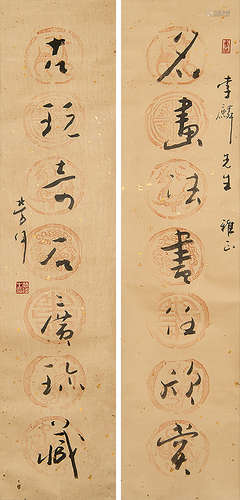 李麟先生雅正
名畫法書任欣賞
古玩奇石廣珍藏